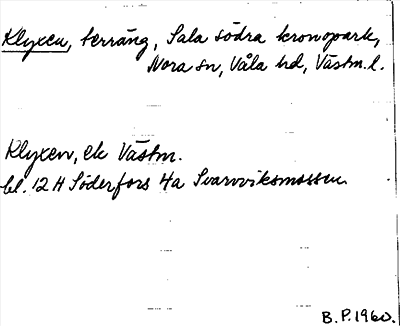 Klyxen, terräng, Sala södra kronopark,
Nora sn, Våla hd, Västm. l.
Klyxen, ek Västm.
bl. 12 H Söderfors 4a Svarvviksmossen
B. P. 1960.